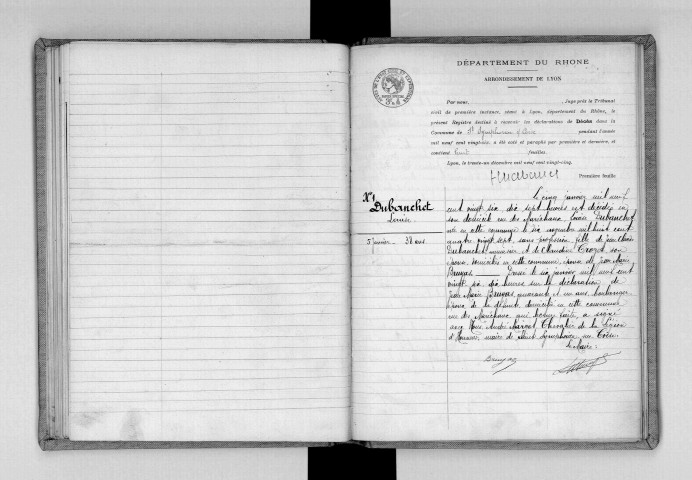 DÉPARTEMENT DU RHONE
ARRONDISSEMENT DE LYON
Par nous, Juge près le Tribunal
civil de première instance, séant à Lyon, département du Rhône, le
présent Registre destiné à recevoir les déclarations de Décès dans la
Commune de St Symphorien s/ Coise pendant l'année
mil neuf cent vingt-six, a été coté et paraphé par première et dernière, et
contient huit feuilles.
Lyon, le trente-un décembre mil neuf cent vingt-cinq.
Première feuille
No 1
Dubanchet
Louise
5 janvier 38 ans
Le cinq janvier mil neuf
cent vingt six dix sept heures est décédée en
son domicile rue des Maréchaux, Louise Dubanchet
née en cette commune le six novembre mil huit cent
quatre vingt sept, sans profession, fille de Jean Claude
Dubanchet et de Claudine Crozet, son
épouse, domiciliés en cette commune, épouse de Jean Marie
Bruyas. Dressé le six janvier mil neuf cent
vingt six dix heures sur la déclaration de
Jean Marie Bruyas quarante et un ans, boulanger
époux de la défunte, domicilié en cette commune
rue des Maréchaux qui, lecture faite, a signé
avec Nous, André Marcel, Chevalier de la Légion
d'Honneur, maire de Saint Symphorien sur Coise.
Le Maire
Bruyas